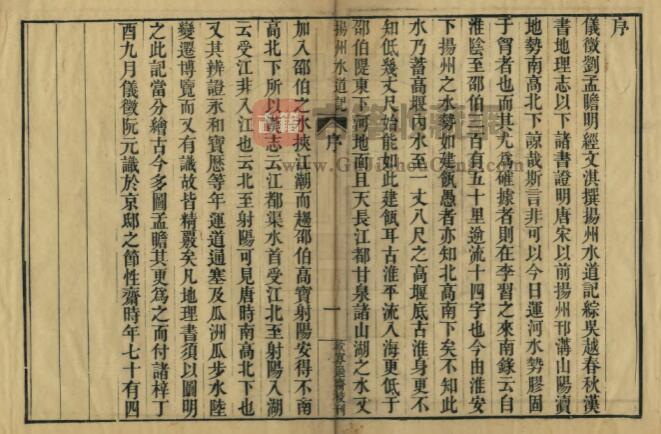 序
儀徵劉孟瞻明經文淇撰揚州水道記綜吳越春秋漢
書地理志以下諸書證明唐宋以前揚州邗溝山陽瀆
地勢南高北下諒哉斯言非可以今日運河水勢膠固
于胷者也而其尤爲確據者則在李習之來南錄云自
淮陰至邵伯三百有五十里逆流十四字也今由淮安
下揚州之水勢如建瓴愚者亦知北高南下矣不知此
水乃蓄高堰內水至一丈八尺之高堰底古淮身更不
知低幾丈尺始能如此建瓴耳古淮平流入海更低于
邵伯隄東下河地面且天長江都甘泉諸山湖之水又
揚州水道記 序 一
加入邵伯之水挾江潮而趨邵伯高寶射陽安得不南
高北下所以漢志云江都渠水首受江北至射陽入湖
云受江非入江也云北至射陽可見唐時南高北下也
又其辨證承和寶曆等年運道通塞及瓜洲瓜步水陸
變遷博覽而又有識故皆精覈矣凡地理書須以圖明
之此記當分繪古今多圖孟瞻其更爲之而付諸梓丁
酉九月儀徵阮元識於京邸之節性齋時年七十有四